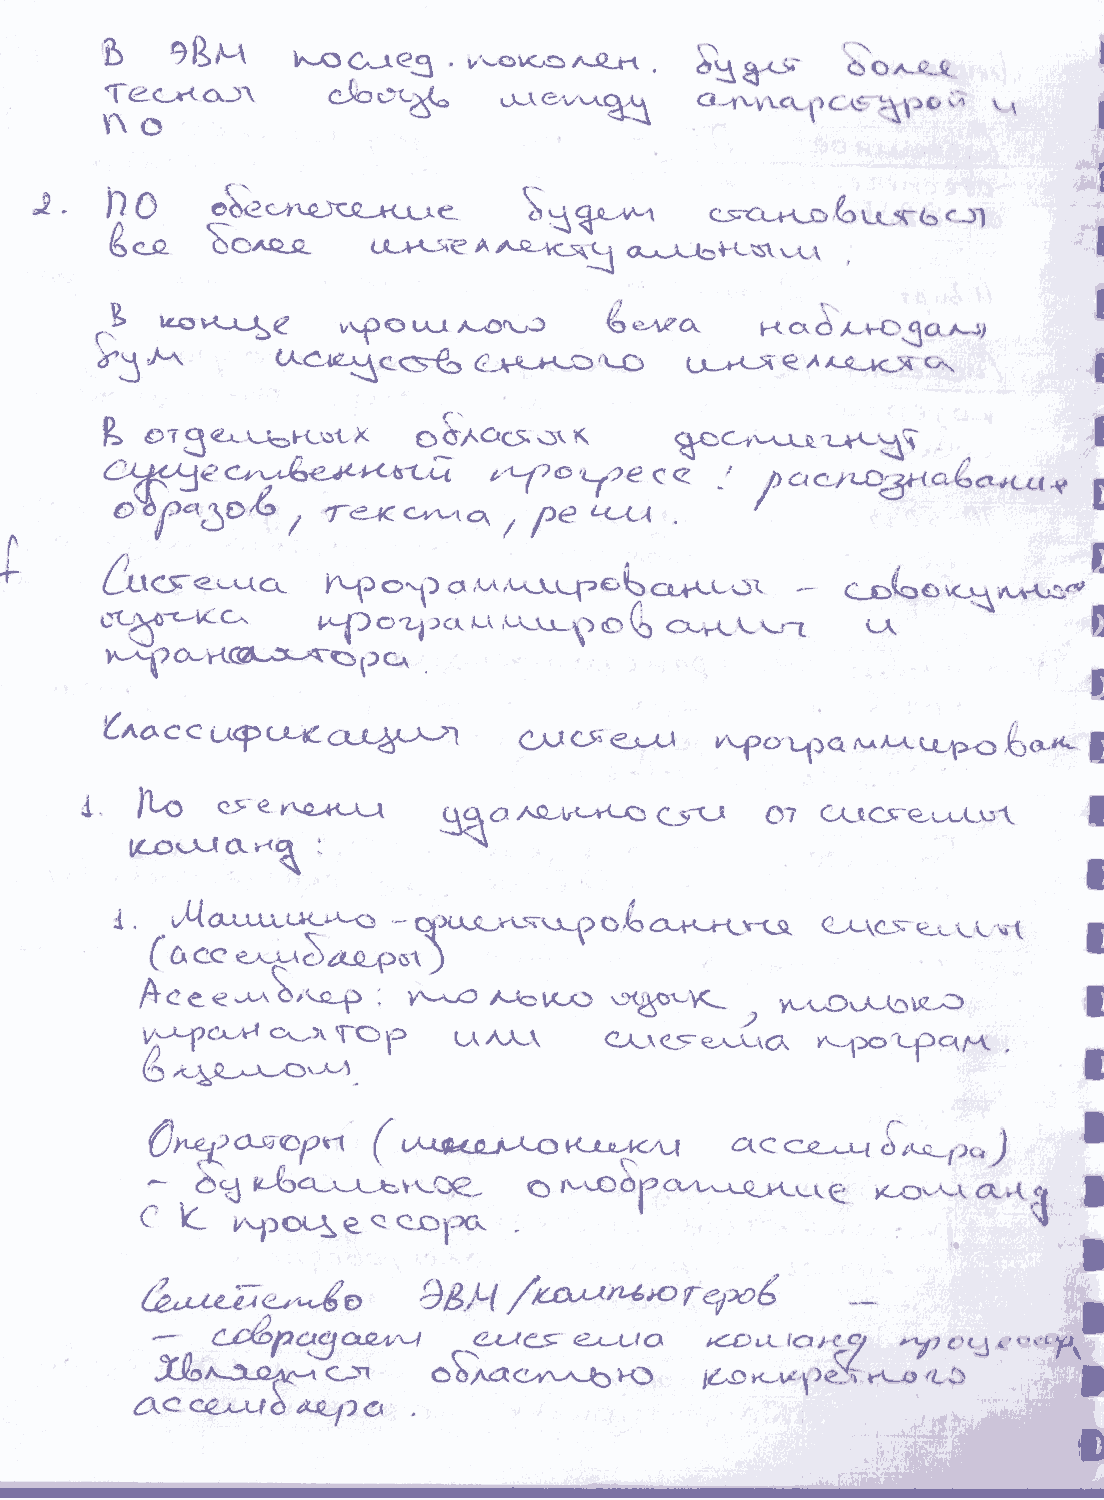 В ЭВМ послед. поколен. будет более
тесная связь между аппаратурой и
ПО
2. ПО обеспечение будет становиться
все более интеллектуальным.
В конце прошлого века наблюдался
бум искусственного интеллекта
В отдельных областях достигнут
существенный прогресс: распознавание
образов, текста, речи.
Система программирования – совокупность
языка программирования и
транслятора.
Классификация систем программирован
1. По степени удаленности от системы
команд:
1. Машинно-ориентированные системы
(ассемблеры)
Ассемблер: только язык, только
транслятор или система програм.
в целом.
Операторы (мнемоники ассемблера)
– буквальное отображение команд
СК процессора.
Семейство ЭВМ/компьютеров –
– совпадает система команд процессора
Является областью конкретного
ассемблера.